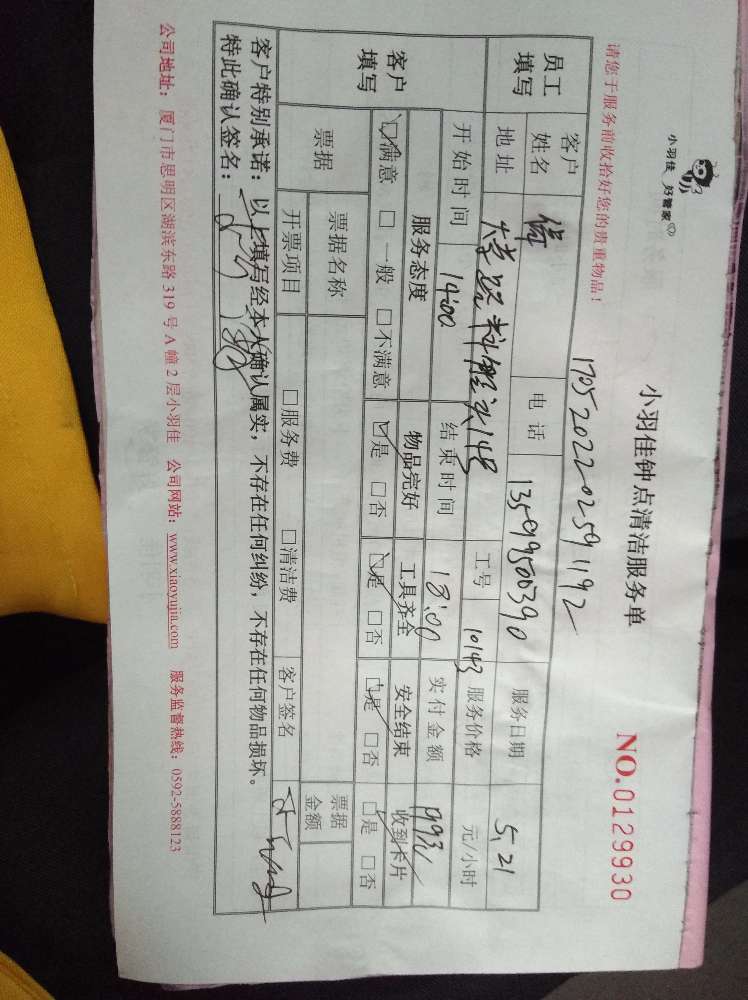 小羽佳 好管家
小羽佳钟点清洁服务单
NO.0129930
请您于服务前收拾好您的贵重物品！
1705202202591192
员工填写 客户姓名 电话 13599500390 服务日期 5.21
地址 148 工号 10143 服务价格 元/小时
客户填写 开始时间 14:00 结束时间 18:00 实付金额
服务态度 物品完好 工具齐全 安全结束 收到卡片
☑满意 □一般 □不满意 ☑是 □否 ☑是 □否 ☑是 □否 ☑是 □否
票据 票据名称 票据金额
开票项目 □服务费 □清洁费 客户签名
客户特别承诺：以上填写经本人确认属实，不存在任何纠纷，不存在任何物品损坏。
特此确认签名：
公司地址：厦门市思明区湖滨东路 319 号 A 幢 2 层小羽佳 公司网站：www.xiaoyujia.com 服务监督热线：0592-5888123